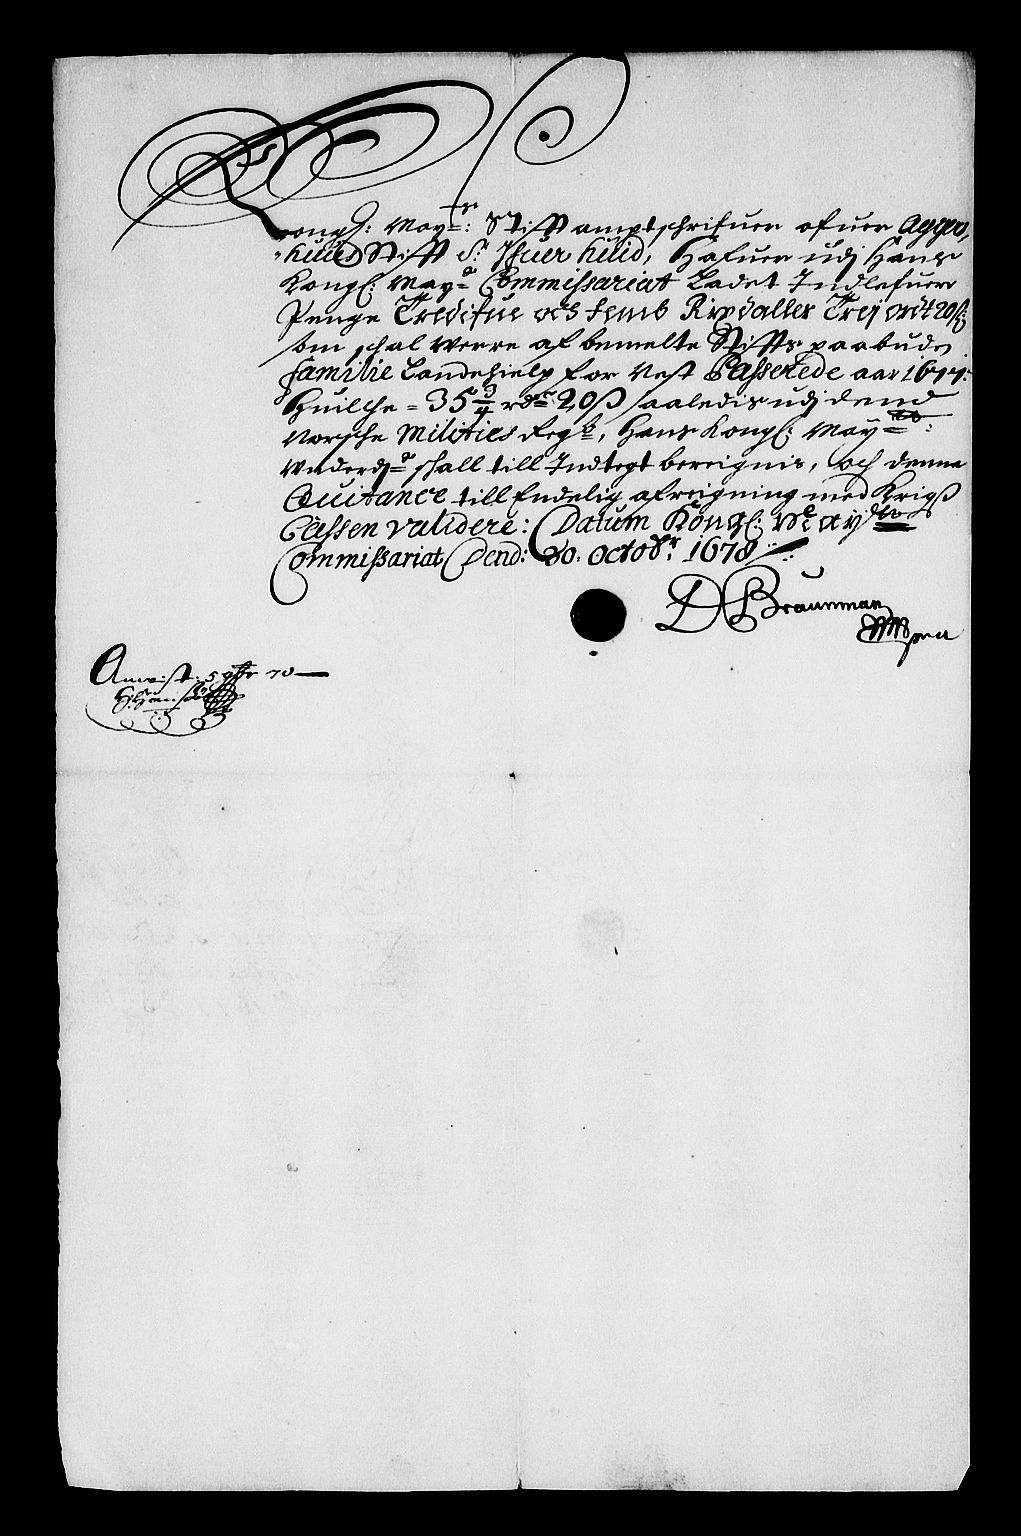 Kongl: May.ts: Stifft amptschrifuer ofuer Aggers,
huus Stifft Sr. Ifuer Huid, Hafuer udj Hans
Kongl: May.ts Commissariat Ladet Indlefuere
Penge Treditue och femb Rixdaller Trej ort 20 ß
som schal were af bemelte Stiffts paabudne
familie Landehielp for Nest Passerede aar 1677:
Huilche = 35 3/4 rdr 20 ß saaledis udj dend
Norsche Milities Regsk, Hans Kongl: May.ts:
Underd.st schall till Indtegt beregnis, och denne
Quitance till Endelig afreigning med Krigs
Cassen validere: Datum Kongl: May.ts
Commissariat Dend: 30. Octobr: 1678
D Braunman
mpria
Anvist: 70